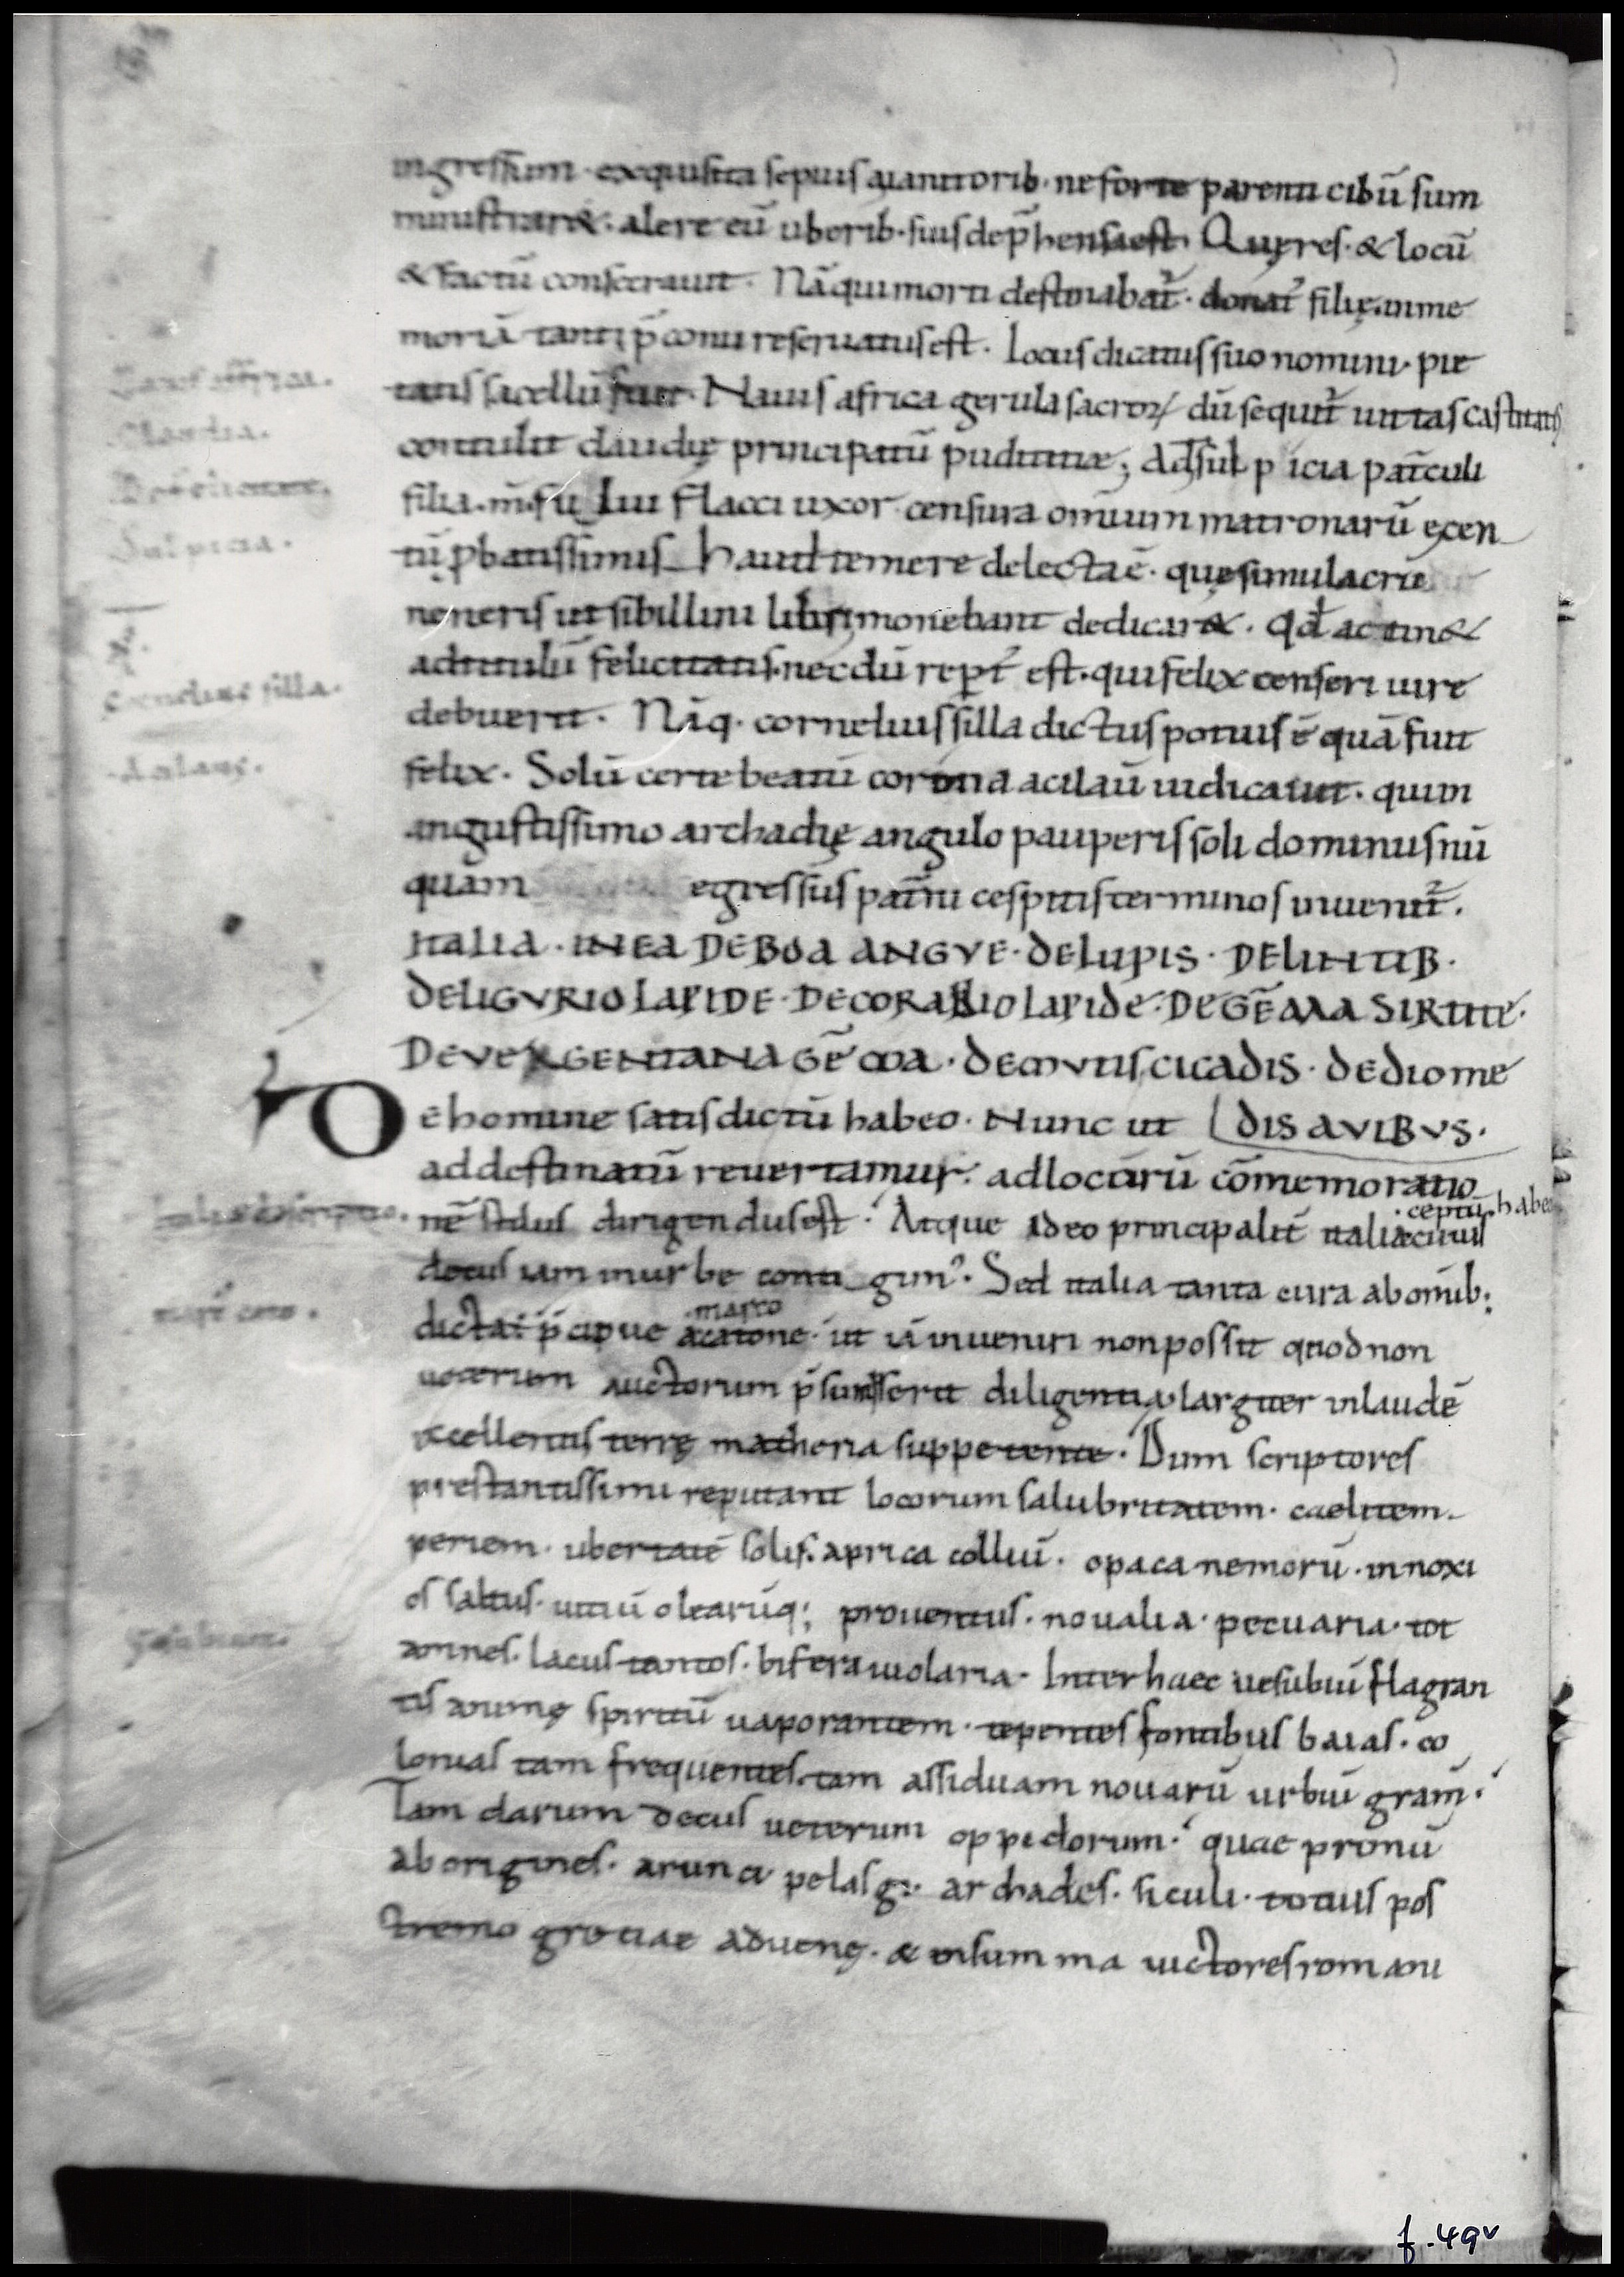 ingressum · exquisita sepius a ianitorib · ne forte parenti cibū sum
ministrar& · alere eū uberib · suis dep̄hensa est · Quę res · & locū
& factū consecrauit · Nā qui morti destinabat̃ · donat̃ filię · in me
moriā tanti p̄conii reseruatus est · Locus dicatus suo nomini · pie
tatis sacellū fuit · Nauis africa gerula sacroꝝ dū sequit̃ uittas castitatis
contulit claudię principatū pudititiæ ; Ad̄ sulpicia pat̄culi
filia · m̄ · fu lui flacci uxor censura om̄ium matronarū e cen
tū p̄batissimis haud temere delecta ē · quę simulacrū
neneris ut sibillini libri monebant dedicar& · Qd̄ ac tin&
ad titulū felicitatis · necdū rept̃ est · qui felix censeri iure
debuerit · Nāq · cornelius silla dictus potius ē quā fuit
felix · Solū certe beatū corona acilaū iudicauit · qui in
angustissimo archadię angulo pauperis soli dominus nū
quam egressus pat̄ni cespitis terminos inuenit̃ .
ITALIA · IN EA DE BOA ANGVE · DE LUPIS · DE LINTIB ·
DE LIGVRIO LAPIDE · DE CORALLIO LAPIDE · DE GĒMA SIRTITE ·
DE VEGENTANA GĒMA · DE MVTIS CICADIS · DE DIOME
DIS AVIBVS ·
D E homine satis dictū habeo · Nunc ut
ad destinatū reuertamur · ad locorū cōmemoratio
nē stilus dirigendus est · Atque ideo principalit̄ italiæ cuius
· ceptū · habe
decus iam in urbe conti gim̃ · Sed italia tanta cura ab om̄ib ;
· marco
dicta · p̄cipue a catone · ut iā inueniri non possit quod non
ueterum auctorum p̄sumserit diligentia largiter in laudē
excellentis terrę matheria suppetente · Dum scriptores
prestantissimi reputant locorum salubritatem · caeli tem
periem · ubertatē solis · aprica colliū · opaca nemorū · innoxi
os saltus · uitiū olearūq ; prouentus · noualia · pecuaria · tot
amnes · lacus tantos · bifera uiolaria · Inter haec uesubiū flagran
tis animę spiritū uaporantem · tepentes fontibus baias · co
lonias tam frequentes · tam assiduam nouarū urbiū gram̄ ·
Tam clarum decus ueterum oppidorum · quae primū
aborigines · arunci pelasgi · archades · siculi · totius pos
tremo grociae aduenę · & in summa uictores romani
Claudia .
Sulpicia .
Cornelius silla .
f . 49v